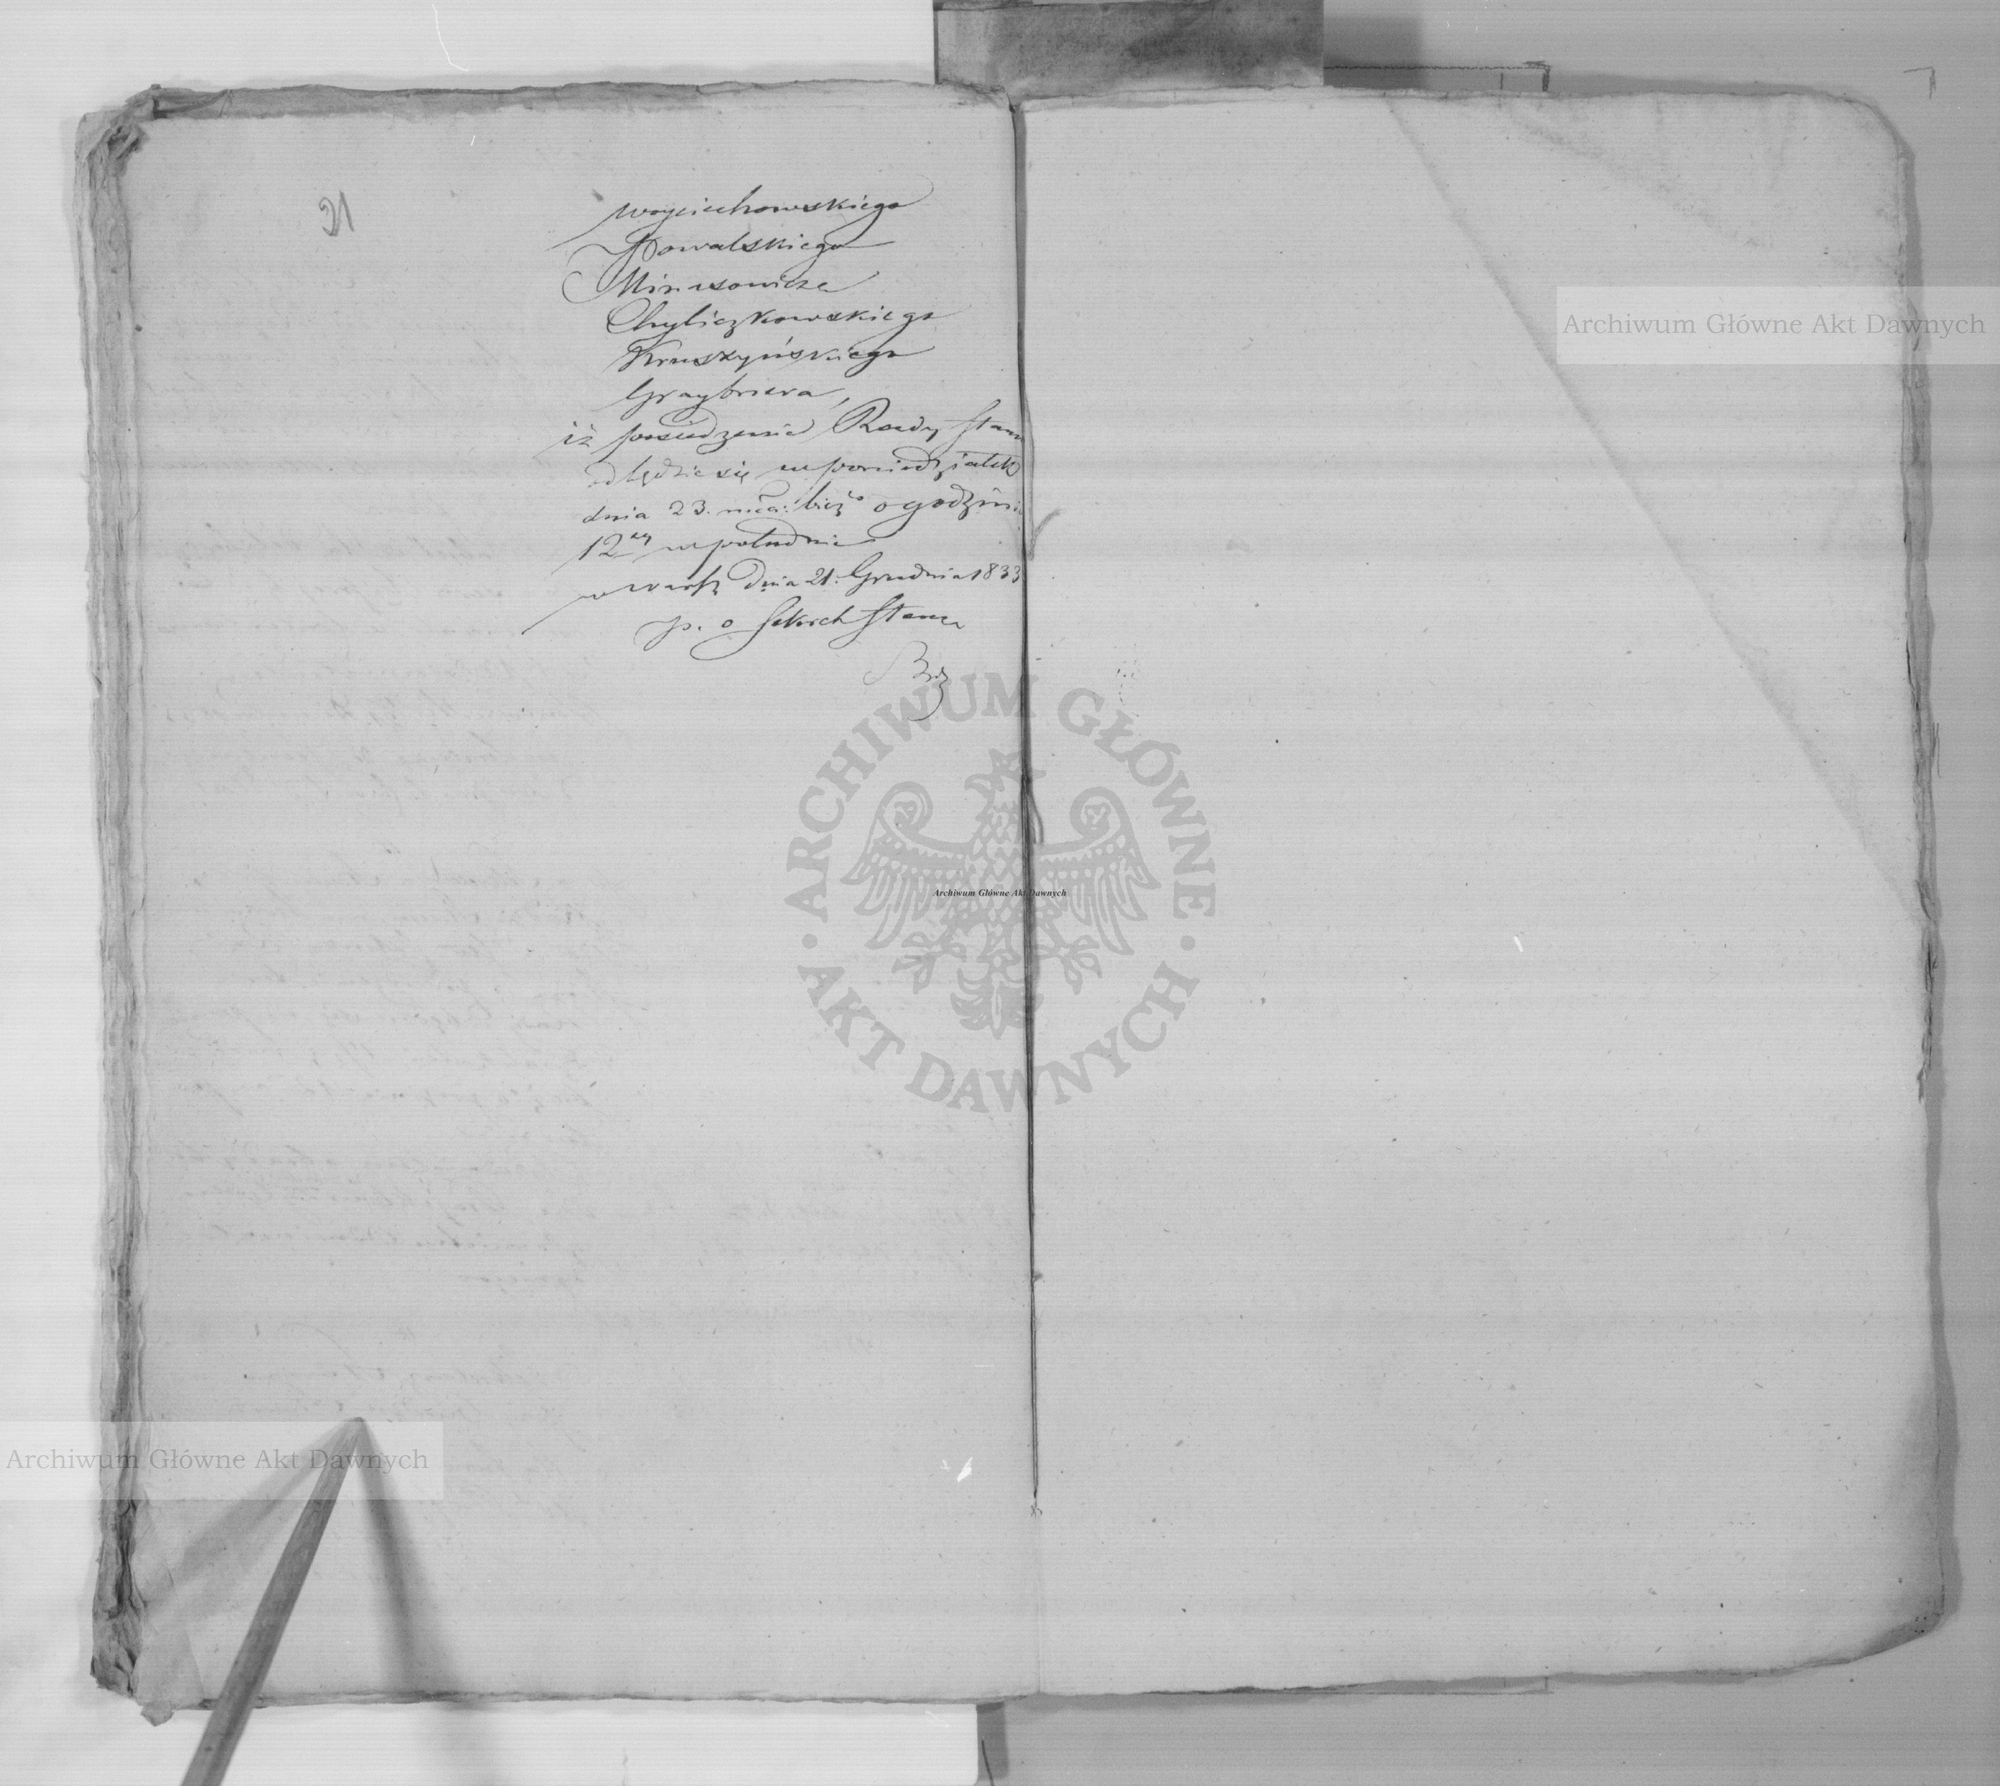 21
Woyciechowskiego
Kowalskiego
Minasowicza
Chyliczkowskiego
Kruszyńskiego
Graybnera,
iż posiedzenie Rady Stanu
odbędzie się w poniedziałek
dnia 23. mca: bieżo o godzinie
12ey w południe
w Warsz dnia 21. Grudnia 1833
p. o Sekreh Stanu
Archiwum Główne Akt Dawnych
ARCHIWUM GŁÓWNE
Archiwum Główne Akt Dawnych
AKT DAWNYCH
Archiwum Główne Akt Dawnych